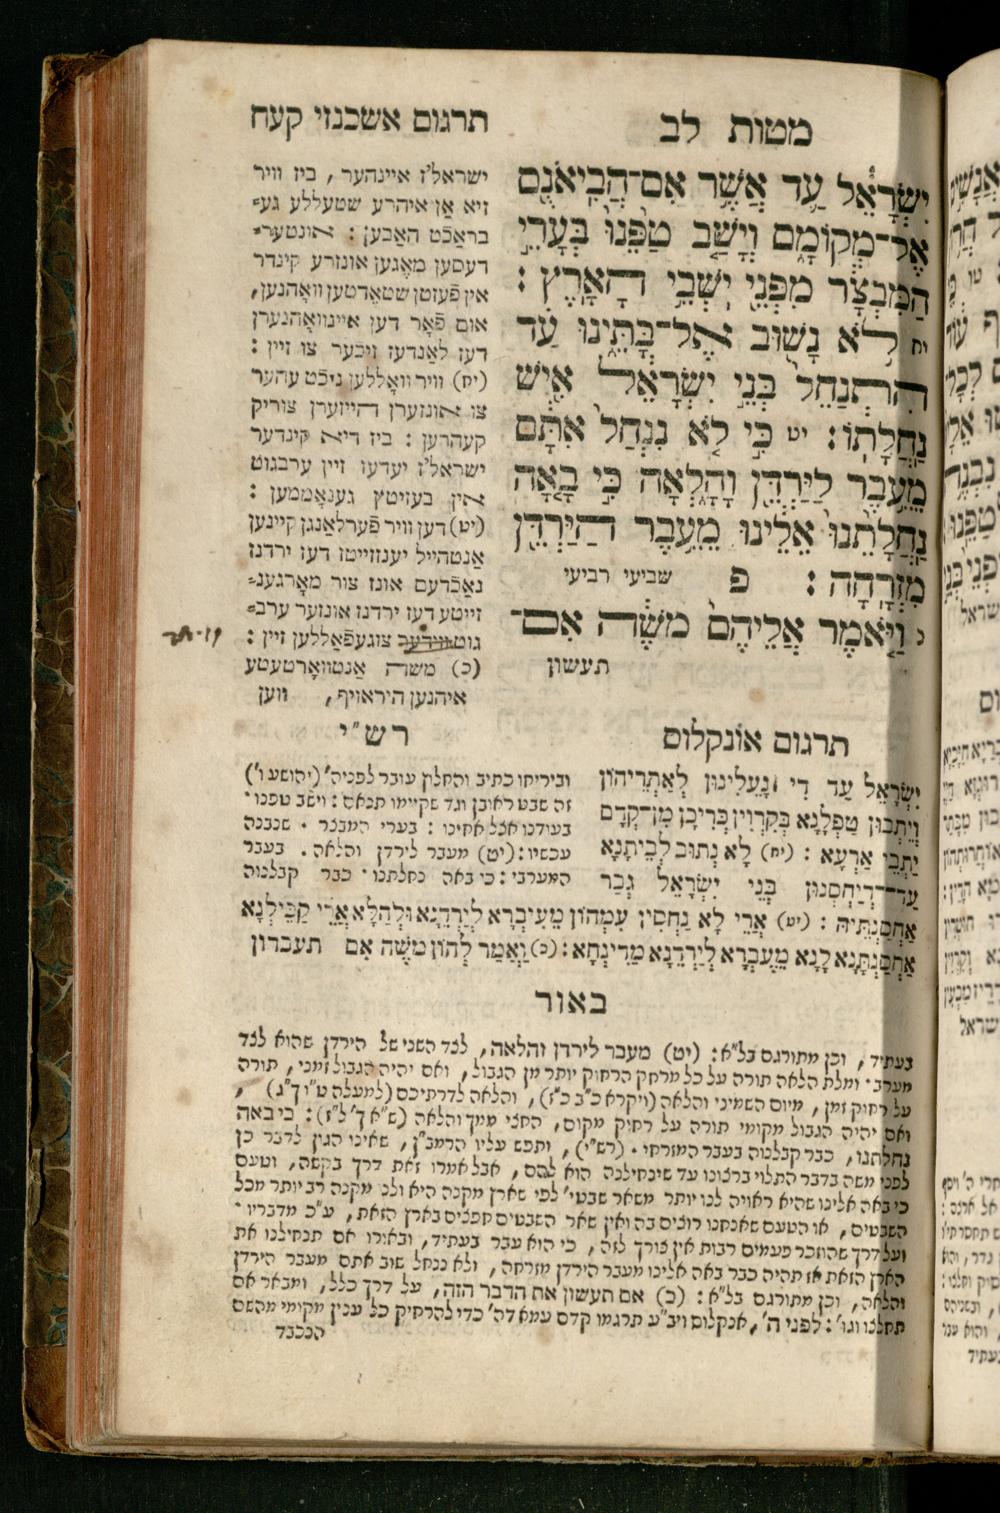 מטות לב
תרגום אשכנזי קעח
יִשְׂרָאֵל עַד אֲשֶׁר אִם־הֲבִיאֹנֻם
אֶל־מְקוֹמָם וְיָשַׁב טַפֵּנוּ בְּעָרֵי
הַמִּבְצָר מִפְּנֵי יֹשְׁבֵי הָאָרֶץ :
יח לֹא נָשׁוּב אֶל־בָּתֵּינוּ עַד
הִתְנַחֵל בְּנֵי יִשְׂרָאֵל אִישׁ
נַחֲלָתוֹ: יט כִּי לֹא נִנְחַל אִתָּם
מֵעֵבֶר לַיַּרְדֵּן וָהָלְאָה כִּי בָאָה
נַחֲלָתֵנוּ אֵלֵינוּ מֵעֵבֶר הַיַּרְדֵּן
מִזְרָחָה : פ שביעי רביעי
כ וַיֹּאמֶר אֲלֵיהֶם מֹשֶׁה אִם־
תעשון
ישראל'ז איינהער, ביז וויר
זיא אָן איהרע שטעללע גע=
בראַכֿט האַבען : אונטער=
דעסען מאָגען אונזרע קינדר
אין פֿעזטן שטאָדטען וואָהנען,
אום פֿאָר דען איינוואָהנערן
דעז לאַנדעז זיכער צו זיין :
(יח) וויר וואָללען ניכֿט עהער
צו אונזערן הייזערן צוריק
קעהרען : ביז דיא קינדער
ישראל'ז יעדעז זיין ערבגוט
אין בעזיטץ גענאָממען :
(יט) דען וויר פֿערלאַנגן קיינען
אַנטהייל יענזייטז דעז ירדנז
נאַכֿדעם אונז צור מאָרגענ=
זייטע דעז ירדנז אונזער ערב=
גוט ווידער צוגעפֿאַללען זיין :
(כ) משה אַנטוואָרטעטע
איהנען היראויף, ווען
תרגום אונקלוס
יִשְׂרָאֵל עַד דִי נָעֵלִינוּן לְאַתְרֵיהוֹן
וְיֵתְבוּן טַפְלָנָא בְּקִרְוִין כְּרִיכָן מִן־קֳדָם
יָתְבֵי אַרְעָא : (יח) לָא נְתוּב לְבֵיתָנָא
עַד־דְיַחְסְנוּן בְּנֵי יִשְׂרָאֵל גְּבַר
אַחְסַנְתֵּיהּ : (יט) אֲרֵי לָא נַחְסִין עִמְּהוֹן מֵעִיבְרָא לְיַרְדְנָא וּלְהַלָּא אֲרֵי קַבֵּילְנָא
אַחְסַנְתָּנָא לָנָא מֵעִבְרָא לְיַרְדְנָא מַדִינְחָא : (כ) וַאֲמַר לְהוֹן מֹשֶׁה אִם תעברון
רש"י
וביריחו כתיב והחלוץ עובר לפני ה' (יהושע ו')
זה שבט ראובן וגד שקיימו תנאם : וישב טפנו ·
בעודנו אצל אחינו : בערי המבצר · שנבנה
עכשיו : (יט) מעבר לירדן והלאה. בעבר
המערבי : כי באה נחלתנו · כבר קבלנוה
באור
בעתיד, וכן מתורגם בל"א : (יט) מעבר לירדן והלאה, לצד השני של הירדן שהוא לצד
מערב · ומלת הלאה תורה על כל מרחק הרחוק יותר מן הגבול, ואם יהיה הגבול זמני, תורה
על רחוק זמן, מיום השמיני והלאה (ויקרא כ"ב כ"ז), והלאה לדרתיכם (למעלה ט"ו כ"ג) ,
ואם יהיה הגבול מקומי תורה על רחוק מקום, החצי ממך והלאה (ש"א כ' ל"ז) : כי באה
נחלתנו, כבר קבלנוה בעבר המזרחי · (רש"י), ותפש עליו הרמב"ן, שאינו הגון לדבר כן
לפני משה בדבר התלוי ברצונו עד שינחילנה הוא להם, אבל אמרו זאת דרך בקשה, וטעם
כי באה אלינו שהיא ראויה לנו יותר משאר שבטי' לפי שארץ מקנה היא ולנו מקנה רב יותר מכל
השבטים, או הטעם שאנחנו רוצים בה ואין שאר השבטים חפצים בארץ הזאת, ע"כ מדבריו ·
ועל דרך שהוזכר פעמים רבות אין צורך לזה, כי הוא עבר בעתיד, ובאורו אם תנחילנו את
הארץ הזאת אז תהיה כבר באה אלינו מעבר הירדן מזרחה, ולא ננחל שוב אתם מעבר הירדן
והלאה, וכן מתורגם בל"א : (כ) אם תעשון את הדבר הזה, על דרך כלל, ומבאר אם
תחלצו וגו' : לפני ה', אנקלוס ויב"ע תרגמו קדם עמא דה' כדי להרחיק כל ענין מקומי מהשם
הנכבד